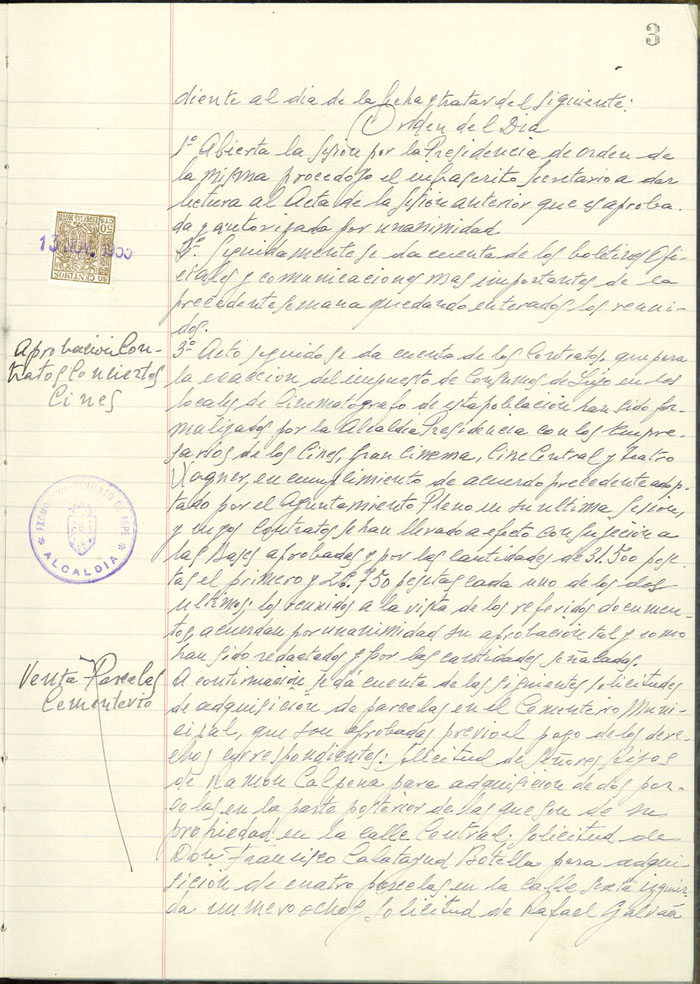 3
diente al dia de la fecha y tratar del siguiente:
Orden del Dia
1º Abierta la sesión por la Presidencia de orden de
la misma procedo yo el infrascrito Secretario a dar
lectura al Acta de la sesión anterior que es aproba-
da y autorizada por unanimidad
2º. Seguidamente se da cuenta de los boletines Ofi-
ciales y comunicaciones mas importantes de la
precedente semana quedando enterados los reuni-
dos.
Aprobacion Con-
tratos Conciertos
Cines
3º Acto seguido se da cuenta de los Contratos, que para
la exaccion del impuesto de Consumos de Lujo en los
locales de Cinematógrafo de esta población han sido for-
malizados por la Alcaldia Presidencia con los Empre-
sarios de los Cines, Gran Cinema, Cine Central y Teatro
Wagner, en cumplimiento de acuerdo precedente adop-
tado por el Ayuntamiento Pleno en su ultima sesión,
y cuyos Contratos se han llevado a efecto con sujeción a
las Bases aprobadas y por las cantidades de 31.500 pese-
tas el primero y 26.750 pesetas cada uno de los dos
ultimos; los reunidos a la vista de los referidos documen-
tos, acuerdan por unanimidad su aprobación tal y como
han sido redactados y por las cantidades señaladas.
Venta Parcelas
Cementerio
A continuación se dá cuenta de las siguientes solicitudes
de adquisición de parcelas en el Cementerio Muni-
cipal, que son aprobadas previo el pago de los dere-
chos correspondientes: Solicitud de Señores Hijos
de Ramon Calpena para adquisición de dos par-
celas en la parte posterior de las que son de su
propiedad en la calle Central; Solicitud de
Don Francisco Calatayud Botella para adqui-
sición de cuatro parcelas en la calle Sexta izquier-
da numero ocho y Solicitud de Rafael Galvañ
13
50
CENTIMOS
ALCALDIA